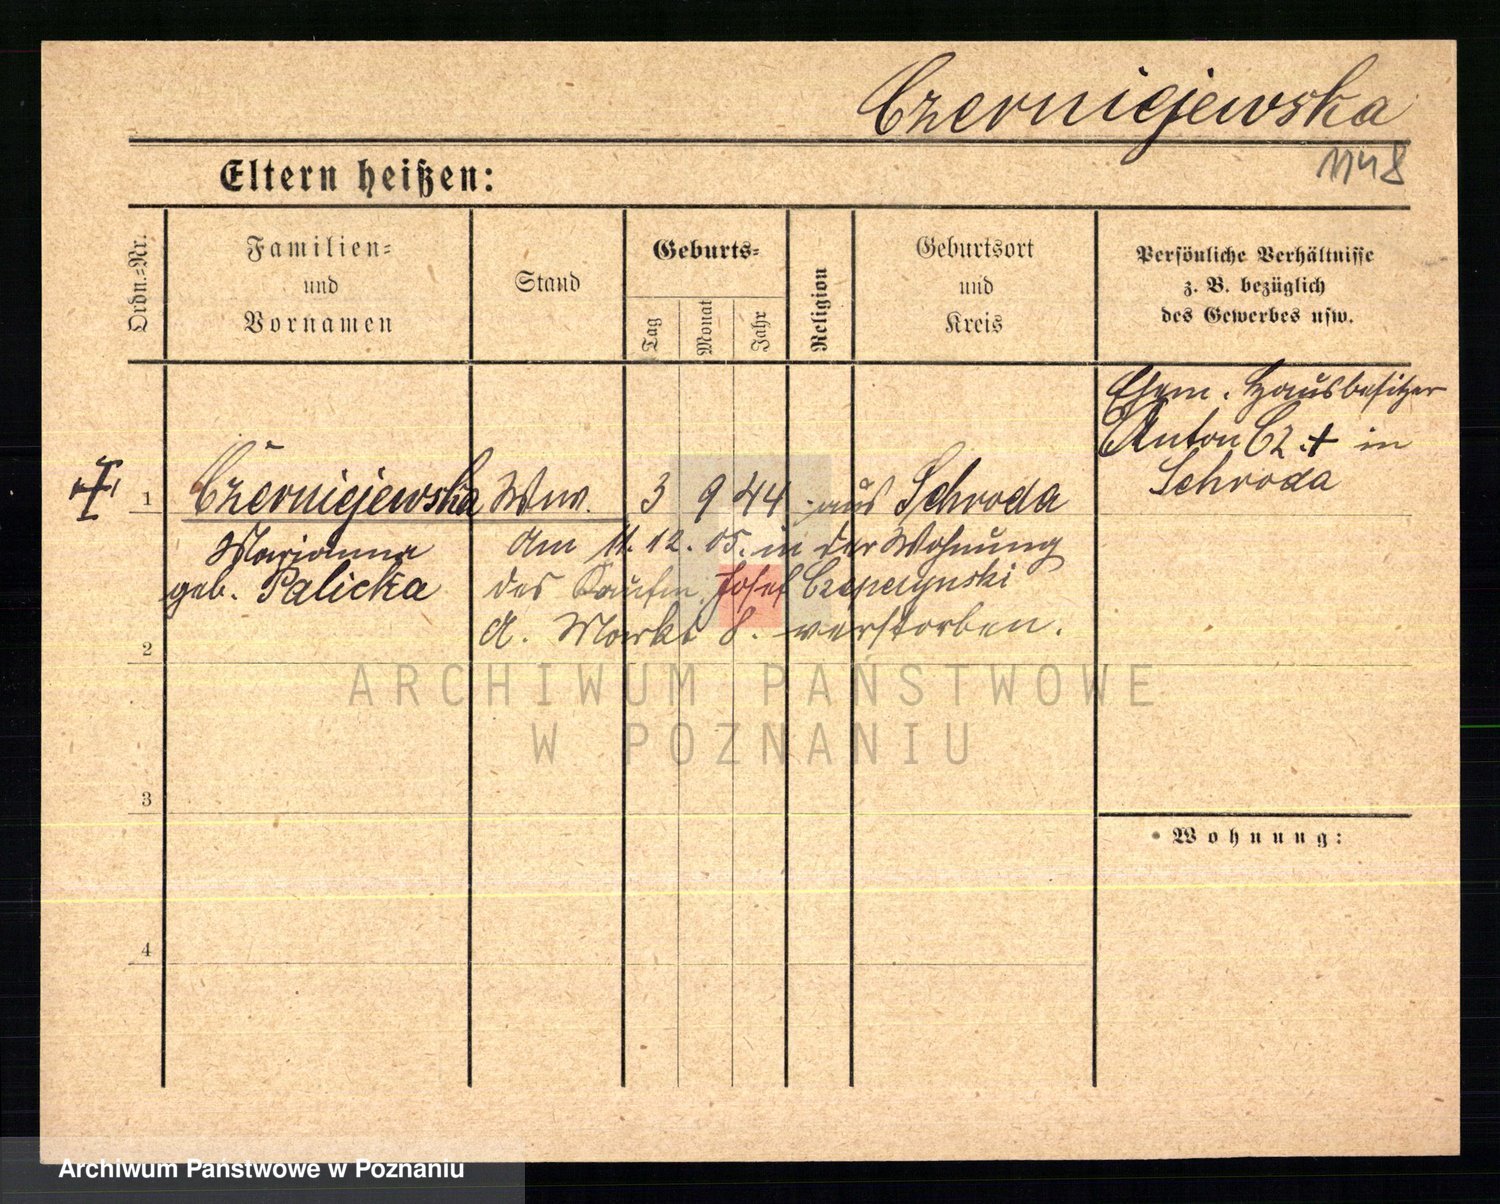 Czerniejewska
1148
Eltern heißen:
Ordn.-Nr.
Familien-
und
Vornamen
Stand
Geburts-
Tag
Monat
Jahr
Religion
Geburtsort
und
Kreis
Persönliche Verhältnisse
z. B. bezüglich
des Gewerbes usw.
Ehem. Hausbesitzer
Anton Cz. + in
Schroda
1
Czerniejewska Ww. 3 9 44 aus Schroda
Marjanna
geb. Palicka
am 11.12.05. in der Wohnung
des Kaufm. Josef Czepczynski
A. Markt 8. verstorben.
2
ARCHIWUM PAŃSTWOWE
W POZNANIU
3
Wohnung:
4
Archiwum Państwowe w Poznaniu